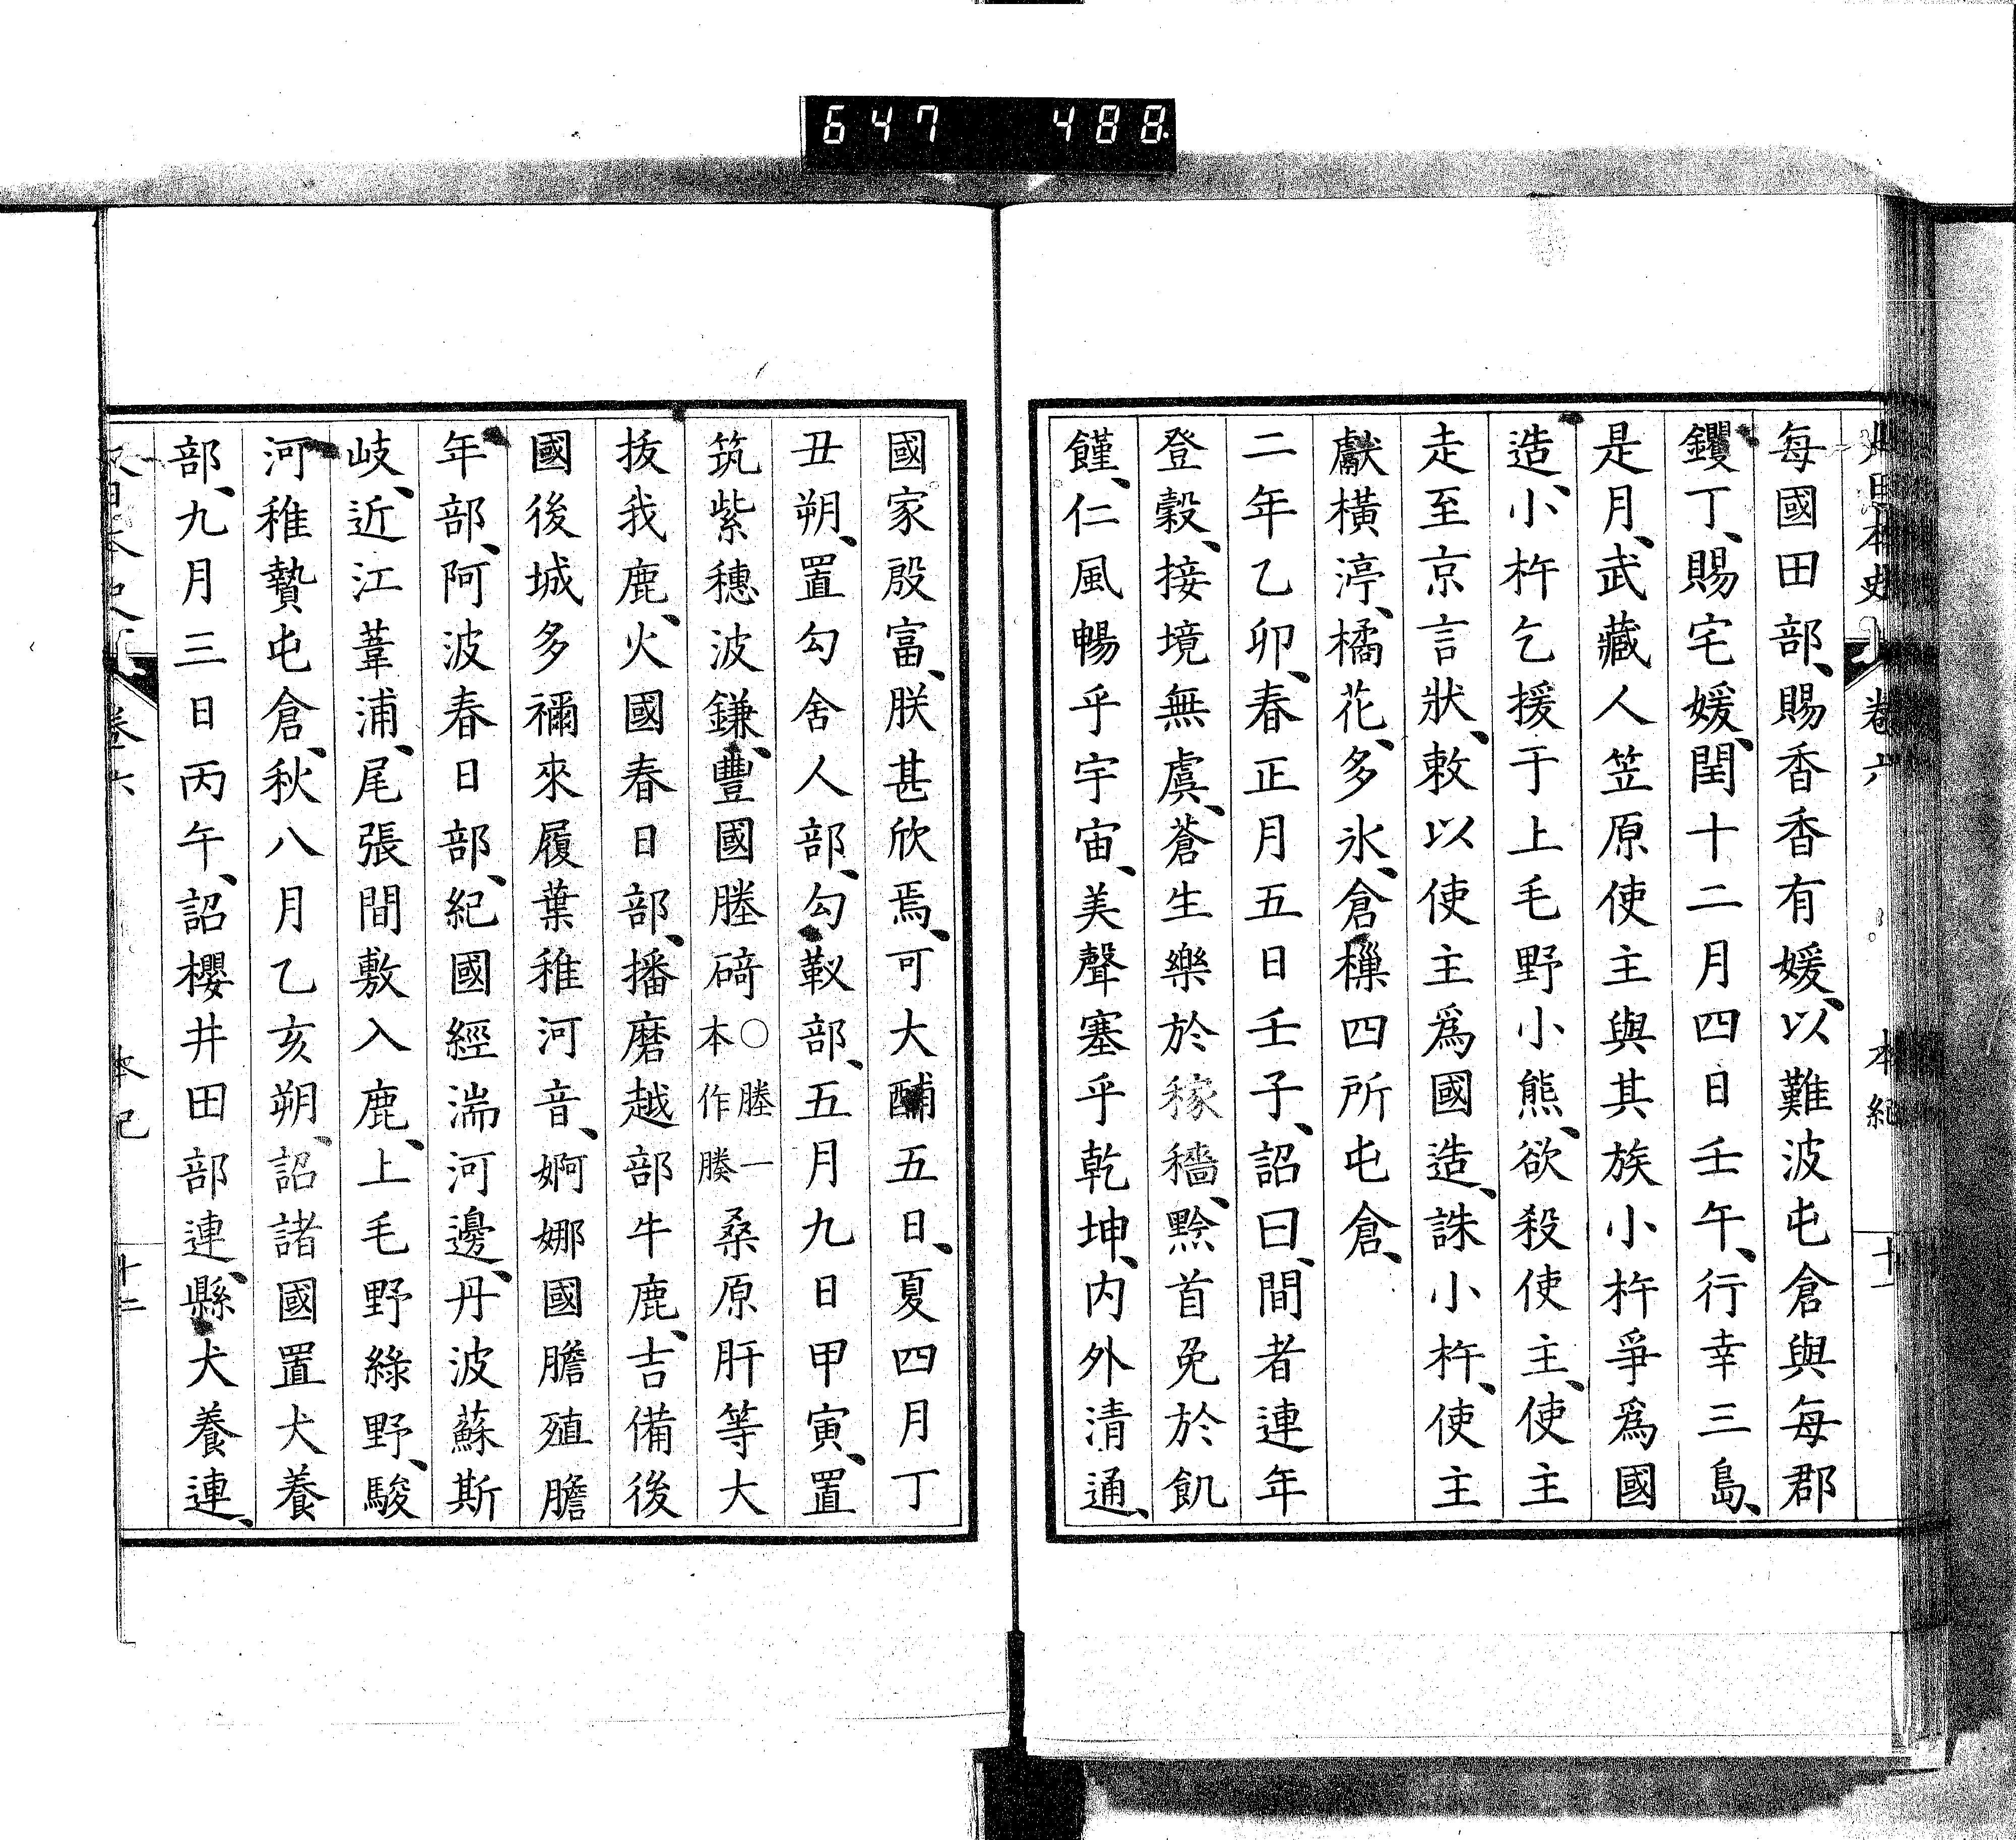 647 488
本史
卷六
本紀
十一
每國田部、賜香香有媛、以難波屯倉與每郡
钁丁、賜宅媛、閏十二月四日壬午、行幸三島、
是月、武藏人笠原使主與其族小杵爭爲國
造、小杵乞援于上毛野小熊、欲殺使主、使主
走至京言狀、敕以使主爲國造、誅小杵、使主
獻橫渟、橘花、多氷、倉樔四所屯倉、
二年乙卯、春正月五日壬子、詔曰、間者連年
登穀、接境無虞、蒼生樂於稼穡、黔首免於飢
饉、仁風暢乎宇宙、美聲塞乎乾坤、内外清通、
國家殷富、朕甚欣焉、可大酺五日、夏四月丁
丑朔、置勾舍人部、勾靫部、五月九日甲寅、置
筑紫穗波鎌、豐國塍碕○塍一本作媵桑原肝等大
拔我鹿、火國春日部、播磨越部牛鹿、吉備後
國後城多禰來履葉稚河音、婀娜國膽殖膽
年部、阿波春日部、紀國經湍河邊、丹波蘇斯
岐、近江葦浦、尾張間敷入鹿、上毛野綠野、駿
河稚贄屯倉、秋八月乙亥朔、詔諸國置犬養
部、九月三日丙午、詔櫻井田部連、縣犬養連、
卷六
十二